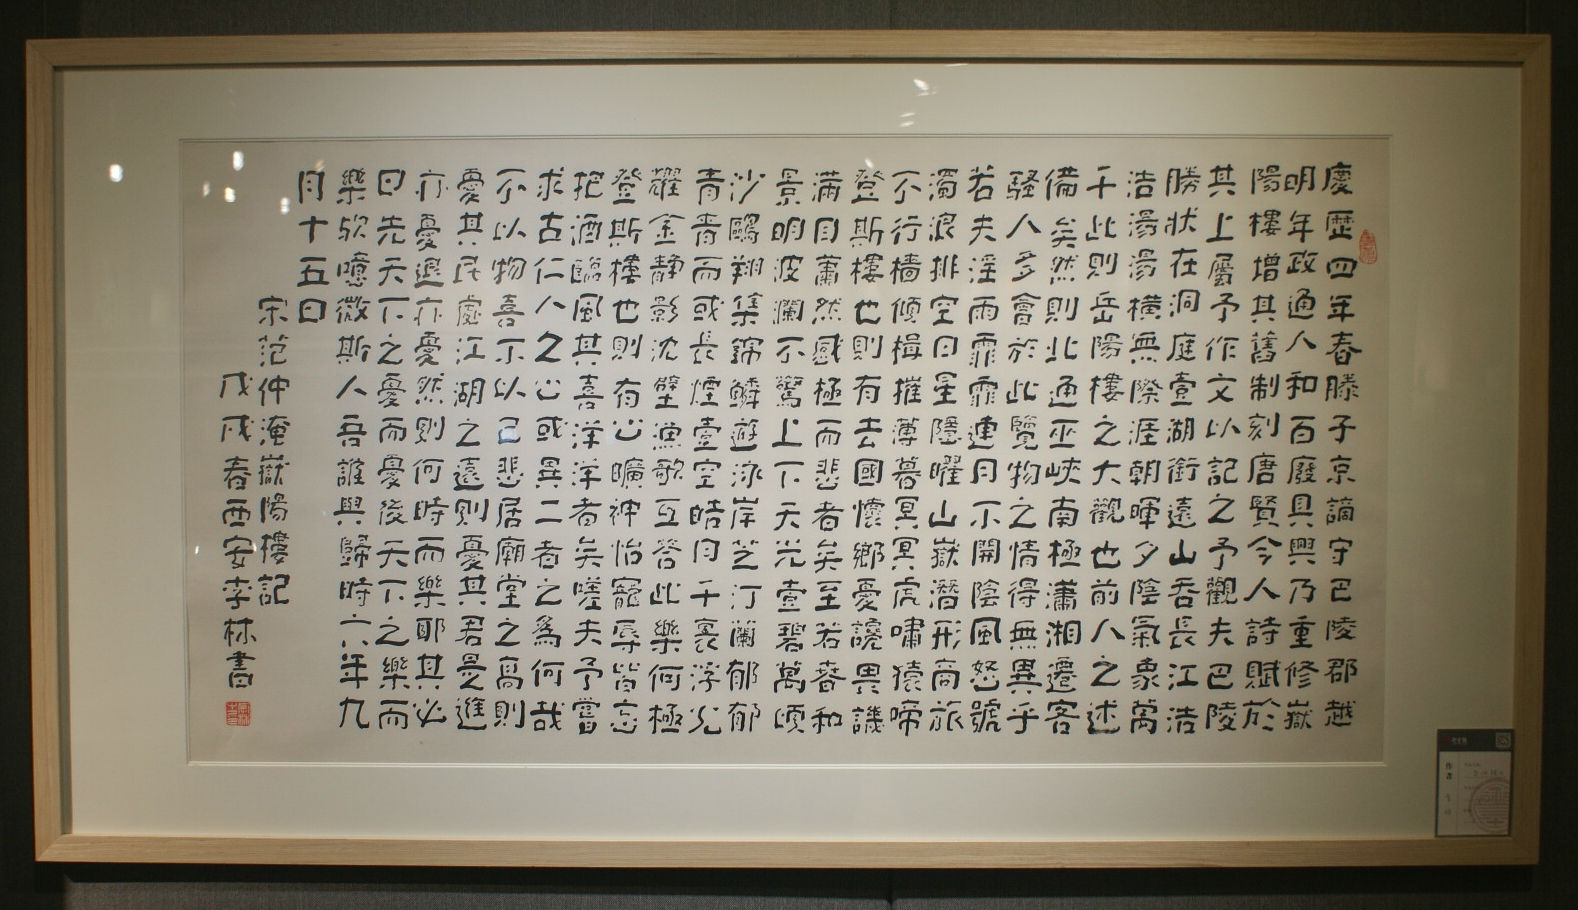 慶歷四年春滕子京謫守巴陵郡越
明年政通人和百廢具興乃重修嶽
陽樓增其舊制刻唐賢今人詩賦於
其上屬予作文以記之予觀夫巴陵
勝狀在洞庭壹湖銜遠山吞長江浩
浩湯湯橫無際涯朝暉夕陰氣象萬
千此則岳陽樓之大觀也前人之述
備矣然則北通巫峽南極瀟湘遷客
騷人多會於此覽物之情得無異乎
若夫淫雨霏霏連月不開陰風怒號
濁浪排空日星隱曜山嶽潛形商旅
不行檣傾楫摧薄暮冥冥虎嘯猿啼
登斯樓也則有去國懷鄉憂讒畏譏
滿目蕭然感極而悲者矣至若春和
景明波瀾不驚上下天光壹碧萬頃
沙鷗翔集錦鱗遊泳岸芝汀蘭郁郁
青青而或長煙壹空皓月千裏浮光
耀金靜影沈壁漁歌互答此樂何極
登斯樓也則有心曠神怡寵辱皆忘
把酒臨風其喜洋洋者矣嗟夫予嘗
求古仁人之心或異二者之為何哉
不以物喜不以己悲居廟堂之高則
憂其民處江湖之遠則憂其君是進
亦憂退亦憂然則何時而樂耶其必
曰先天下之憂而憂後天下之樂而
樂歟噫微斯人吾誰與歸時六年九
月十五日
宋范仲淹嶽陽樓記
戊戌春西安李林書
作者